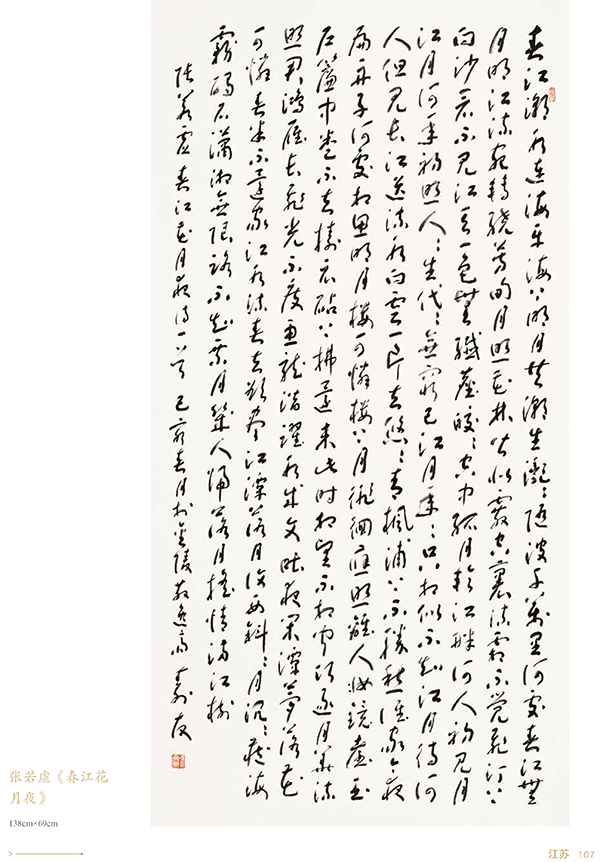 春江潮水连海平海上明月共潮生灧〻随波千万里何处春江无
月明江流宛转绕芳甸月照花林皆似霰空里流霜不觉飞汀上
白沙看不见江天一色无纤尘皎〻空中孤月轮江畔何人初见月
江月何年初照人人生代〻无穷已江月年〻只相似不知江月待何
人但见长江送流水白云一片去悠〻青枫浦上不胜愁谁家今夜
扁舟子何处相思明月楼可怜楼上月徘徊应照离人妆镜台玉
户帘中卷不去捣衣砧上拂还来此时相望不相闻愿逐月华流
照君鸿雁长飞光不度鱼龙潜跃水成文昨夜闲潭梦落花
可怜春半不还家江水流春去欲尽江潭落月复西斜斜月沉〻藏海
雾碣石潇湘无限路不知乘月几人归落月摇情满江树
张若虚春江花月夜诗一首己亥春月于金陵
张若虚《春江花
月夜》
138cm×69cm
江苏 107